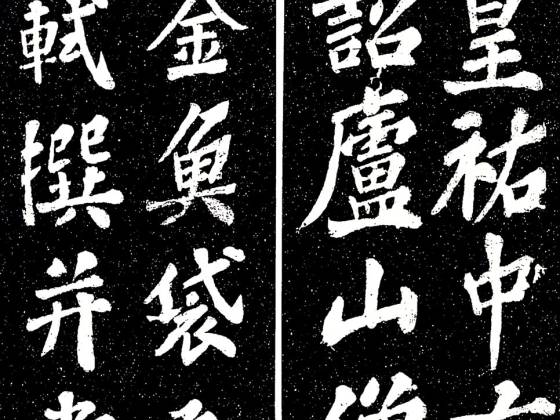 皇祐中有
詔廬山僧
金魚袋
軾撰并書